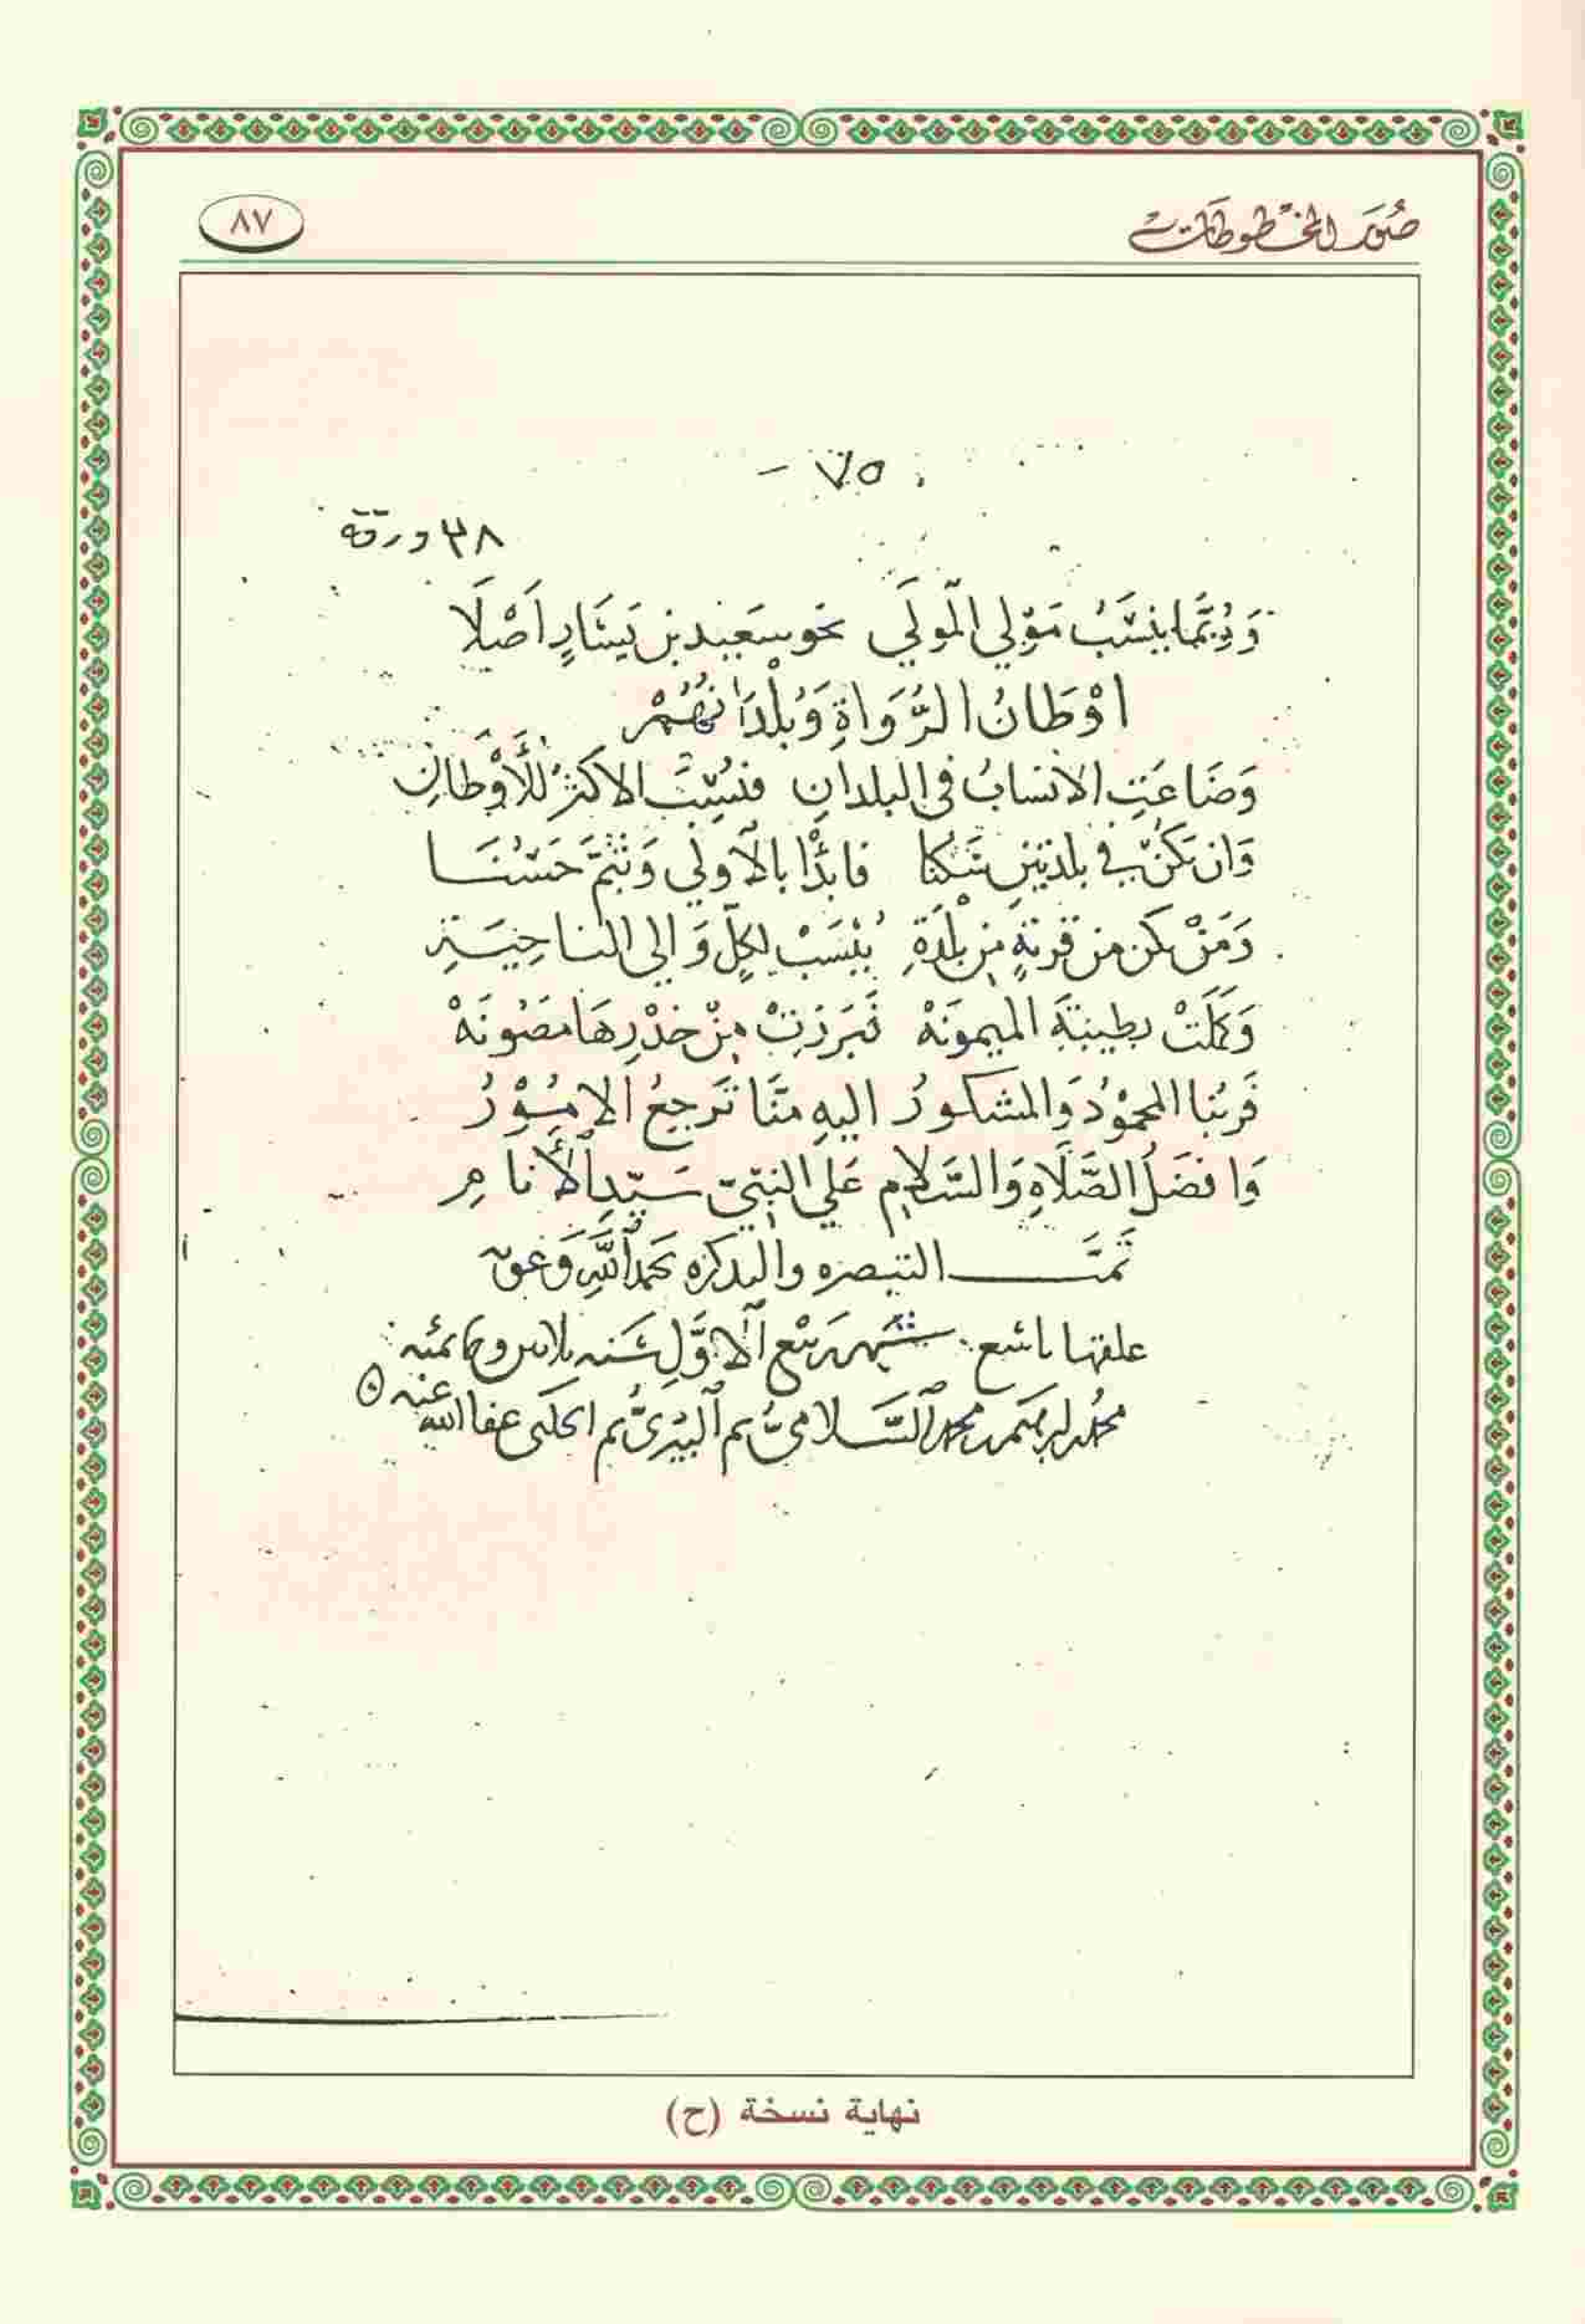 صُوَر المخطوطات
٨٧
٧٥ -
٣٨ ورقة
وَرُبَّمَا يُنْسَبُ مَوْلَي الْمَوْلَي نحو سَعِيد بن يَسَارٍ اَصْلَا
اوْطَانُ الرُّوَاةِ وَبُلْدَانُهُمْ
وَضَاعَتِ الانْسَابُ في البلدانِ فنُسِبَ الاكثَرُ للْأَوْطانِ
وَان يَكُنْ في بلدتَينِ سَكَنا فابْدَأْ بالْأُولَي وَبثُمَّ حَسُنَا
وَمَنْ يكن من قريةٍ مِن بَلْدَةِ يُنْسَبْ لِكلٍّ وَالي الناحِيَةِ
وَكَمُلَتْ بطيبَةَ الميمونَهْ فَبَرَزَتْ مِنْ خِدْرِهَا مَصُونَهْ
فَربُّنا المحمُوْدُ وَالمشكورُ اليهِ مِنَّا تَرجِعُ الامُوْرُ
وَافضَلُ الصَّلَاةِ وَالسَّلامِ عَلَي النبِيّ سَيّدِ الْأَنامِ
تَمَّت التبصره والتدكره بحمد اللَّهِ وَعونه
علقها تاسع شَهر رَبيْع الاوَّلِ سَنه ثلاثين وثمانمئه
محمُد بن ابرهيم بن محمد السَّلاميُّ ثم البِيْرِيُّ ثم الحلبى عفا الله عنه ٥
نهاية نسخة (ح)